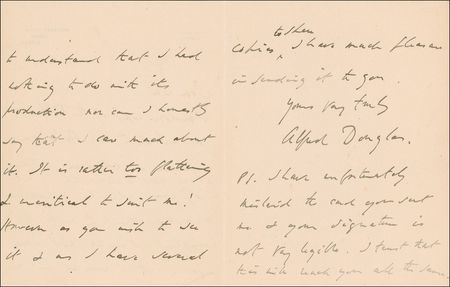 to understand that I had
nothing to do with its
production nor can I honestly
say that I care much about
it. It is rather too flattering
& uncritical to suit me!
However as you wish to see
it & as I have several
to spare
copies, I have much pleasure
in sending it to you.
Yours very truly
Alfred Douglas.
P.S. I have unfortunately
mislaid the card you sent
me & your signature is
not very legible. I trust that
this will reach you all the same.